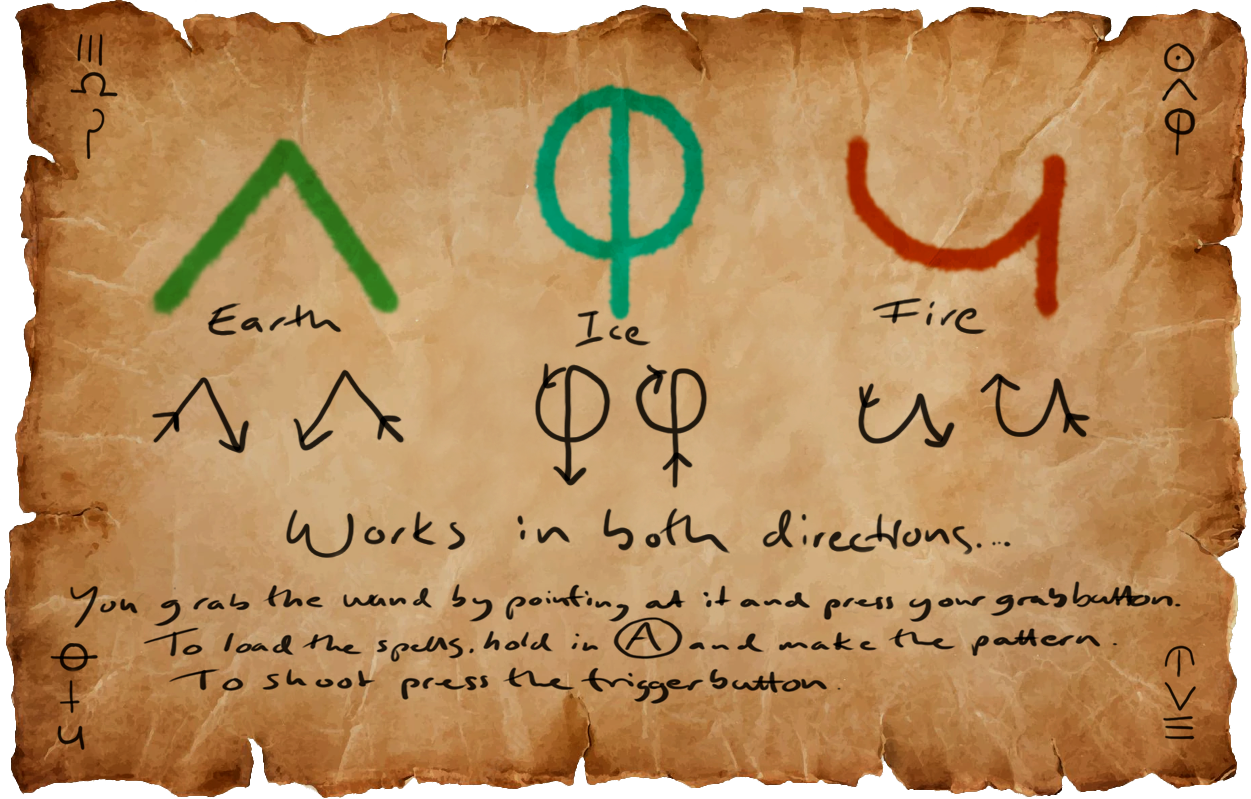 Earth
Ice
Fire
Works in both directions...
You grab the wand by pointing at it and press your grab button.
To load the spells, hold in A and make the pattern.
To shoot press the trigger button.